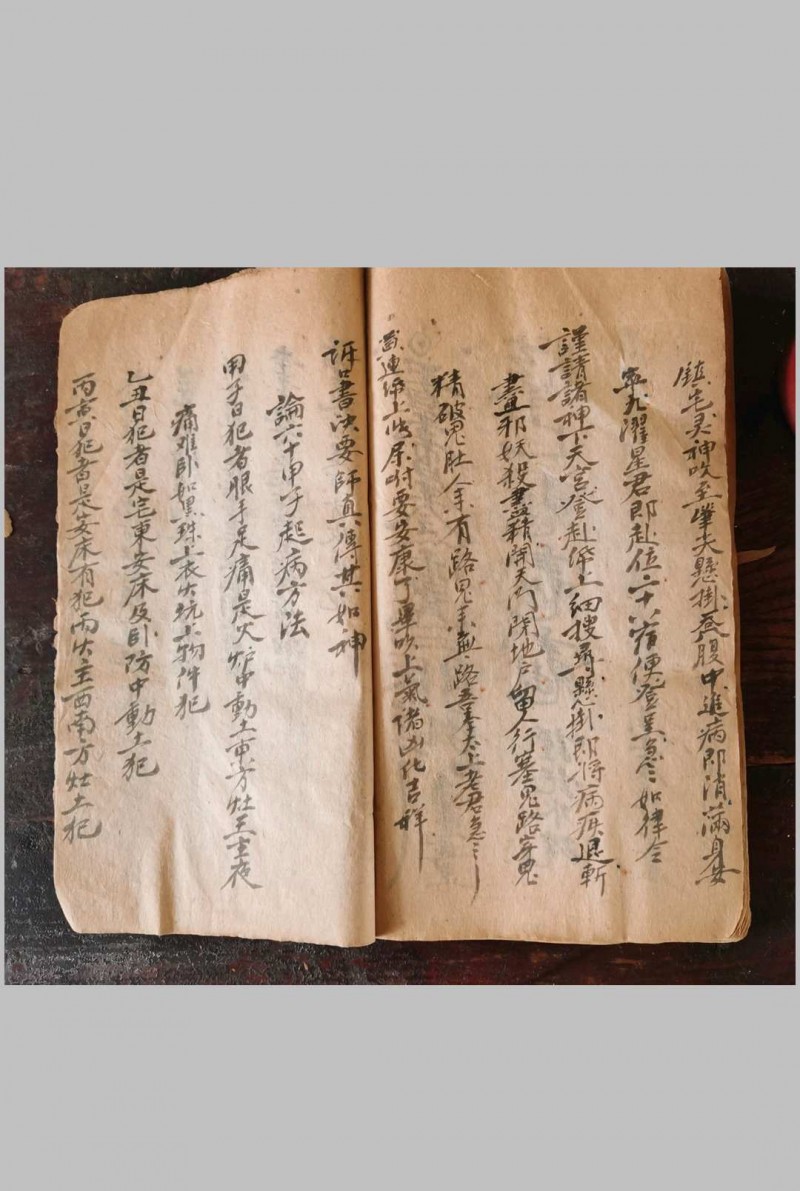 鎮宅灵神吹至筆尖懸掛卷腹中進病即消滿身安
寧九濯星君即赴位二十八宿便登呈急急如律令
謹請諸神下天宮登赴帋上細搜尋懸掛即將病疾退斬
盡邪妖殺盡精開天門閉地户留人行塞鬼路穿鬼
精破鬼肚余有路鬼無路吾奉太上老君急〻
連帋上 尿咐要安康了畢吹上氣诸凶化吉祥
訴口書决要師真傳其如神
論六十甲子起病方法
甲子日犯者眼手足痛是火炉中動土東方灶王主夜
痛难卧如黑珠上衣 坑上物件犯
乙丑日犯者是宅東安床及卧防中動土犯
丙寅日犯者是安床有犯 主西南方灶土犯